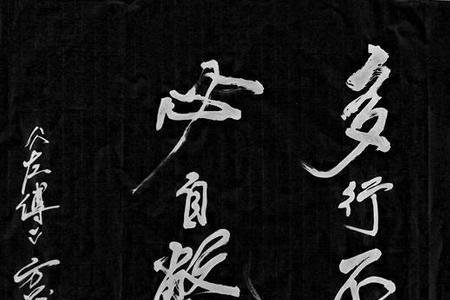 多行不
必自毙
《左传》